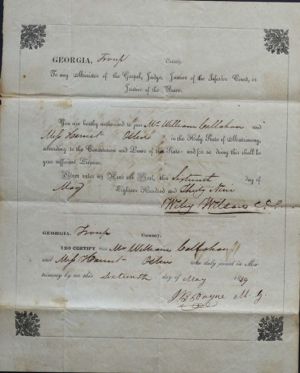 GEORGIA, Troup County.
To any Minister of the Gospel, Judge, Justice of the Inferior Court, or
Justice of the Peace.
You are hereby authorized to join Mr William Callahan and
Miss Harriet in the Holy State of Matrimony,
according to the Constitution and Laws of this State: and for so doing this shall be
your sufficient License.
Given under my Hand and Seal, this Sixteenth day of
May Eighteen Hundred and Thirty Nine
GEORGIA, Troup County.
I DO CERTIFY that Mr William Callahan
and Miss Harriet were duly joined in Ma-
trimony by me this Sixteenth day of May 1839
M. G.